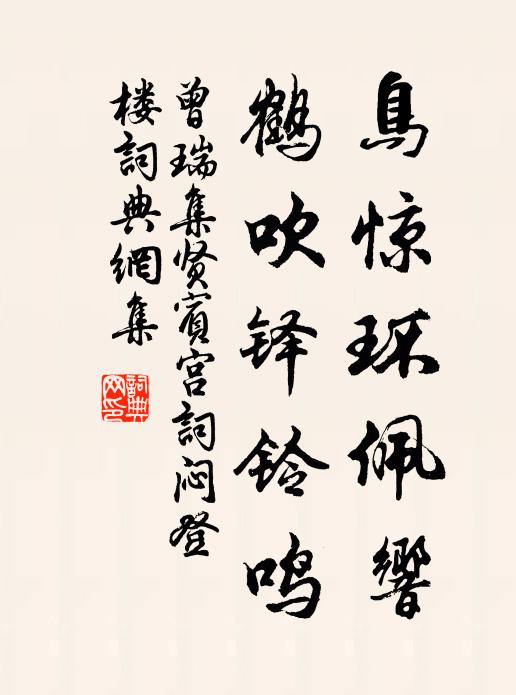 鳥惊环佩響
鹤吹铎铃鸣
曾瑞集贤賓宫詞闷登
楼詞典網集
詞典
网印